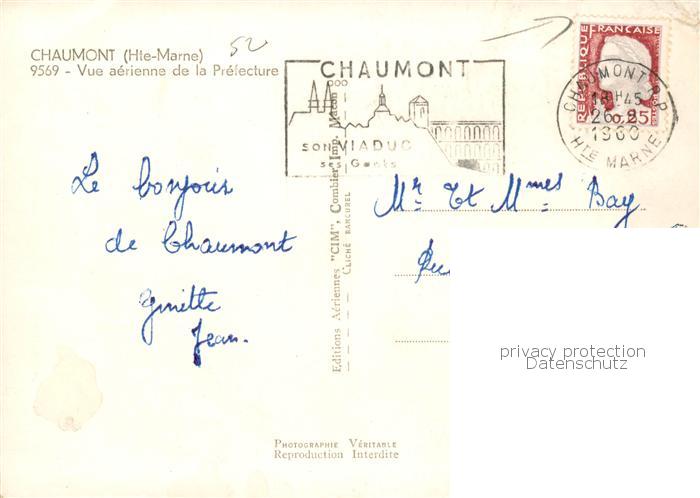 CHAUMONT (Hte-Marne)
9569 - Vue aérienne de la Préfecture
52
CHAUMONT
SON VIADUC
ses Gants
REPUBLIQUE FRANÇAISE
0,25
CHAUMONT R.P.
18H45
1960
HTE MARNE
Le bonjour
de Chaumont
Ginette
Jean.
Editions Aériennes "CIM", Combier Imp. Macon
CLICHÉ RANCUREL
Mr et Mmes Bay
privacy protection
Datenschutz
PHOTOGRAPHIE VÉRITABLE
Reproduction Interdite